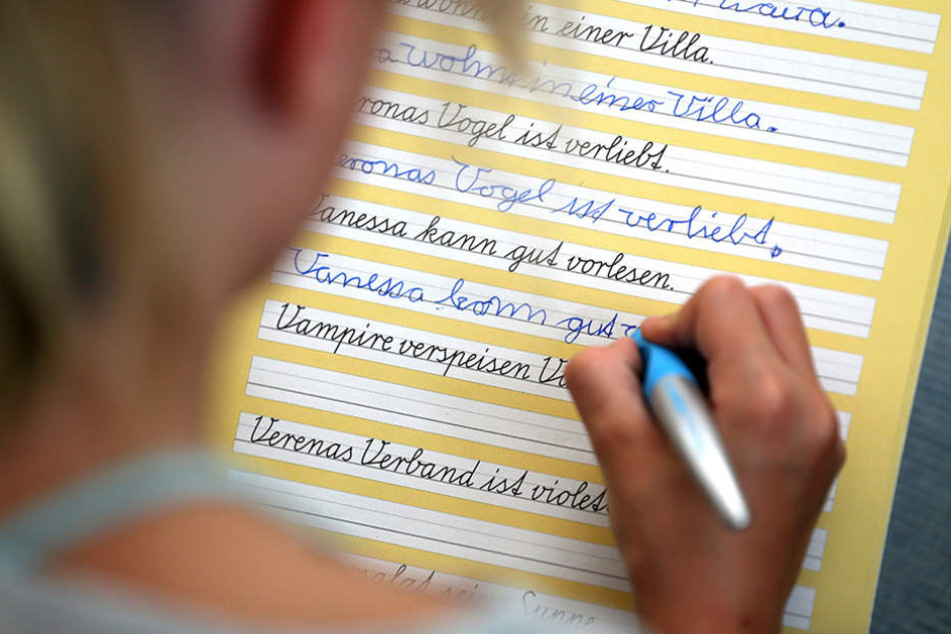 in einer Villa.
wohnt in einer Villa.
ronas Vogel ist verliebt.
eronas Vogel ist verliebt.
Vanessa kann gut vorlesen.
Vanessa kann gut
Vampire verspeisen
Verenas Verband ist violet